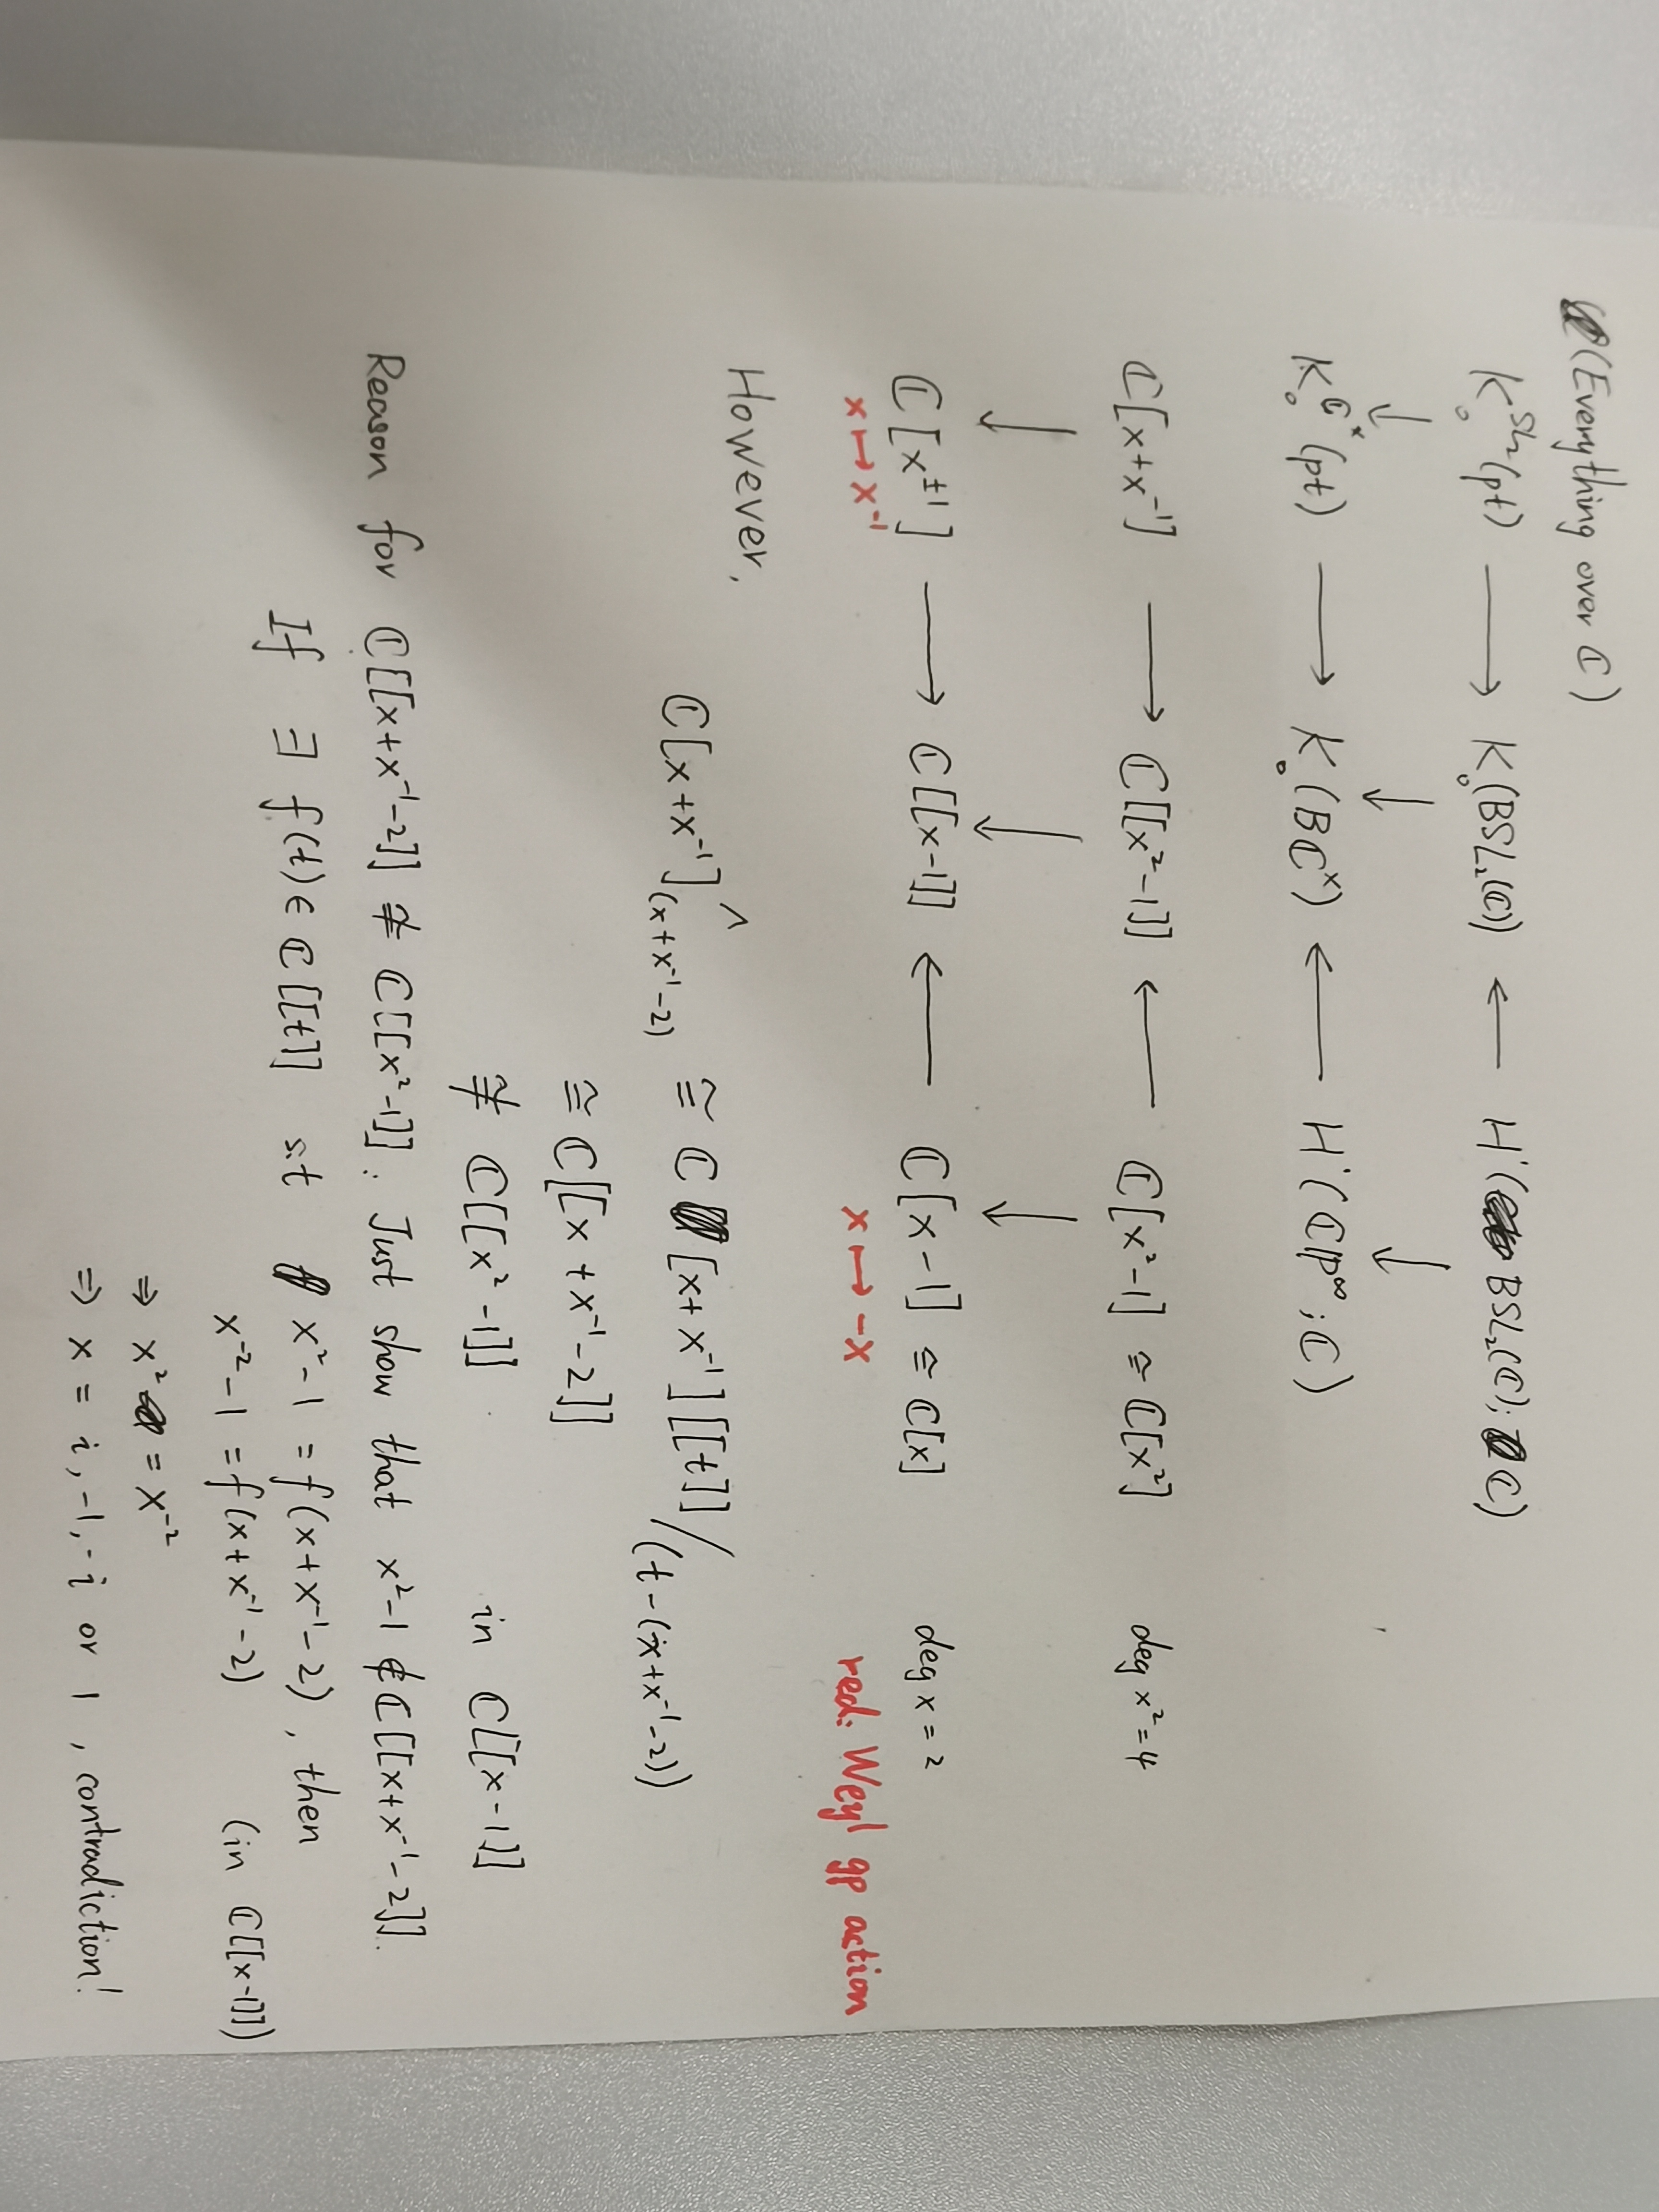 (Everything over ℂ)
K₀^{SL₂}(pt) ⟶ K₀(BSL₂(ℂ)) ⟵ H˙(BSL₂(ℂ); ℂ)
↓ ↓ ↓
K₀^{ℂ^×}(pt) ⟶ K₀(Bℂ^×) ⟵ H˙(ℂP^∞; ℂ)
ℂ[x+x⁻¹] ⟶ ℂ[[x²-1]] ⟵ ℂ[x²-1] ≅ ℂ[x²] deg x² = 4
↓ ↓ ↓
ℂ[x^{±1}] ⟶ ℂ[[x-1]] ⟵ ℂ[x-1] ≅ ℂ[x] deg x = 2
x ↦ x⁻¹ x ↦ -x red: Weyl gp action
However,
ℂ[x+x⁻¹]^∧_{(x+x⁻¹-2)} ≅ ℂ[x+x⁻¹][[t]]/(t-(x+x⁻¹-2))
≅ ℂ[[x+x⁻¹-2]]
≇ ℂ[[x²-1]] in ℂ[[x-1]]
Reason for ℂ[[x+x⁻¹-2]] ≇ ℂ[[x²-1]]. Just show that x²-1 ∉ ℂ[[x+x⁻¹-2]].
If ∃ f(t) ∈ ℂ[[t]] s.t x²-1 = f(x+x⁻¹-2), then
x⁻²-1 = f(x+x⁻¹-2) (in ℂ[[x-1]])
⇒ x² = x⁻²
⇒ x = i, -1, -i or 1, contradiction!